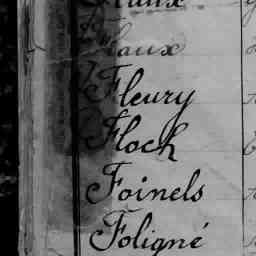 Flaux
Fleury
Floch
Foinels
Foligné